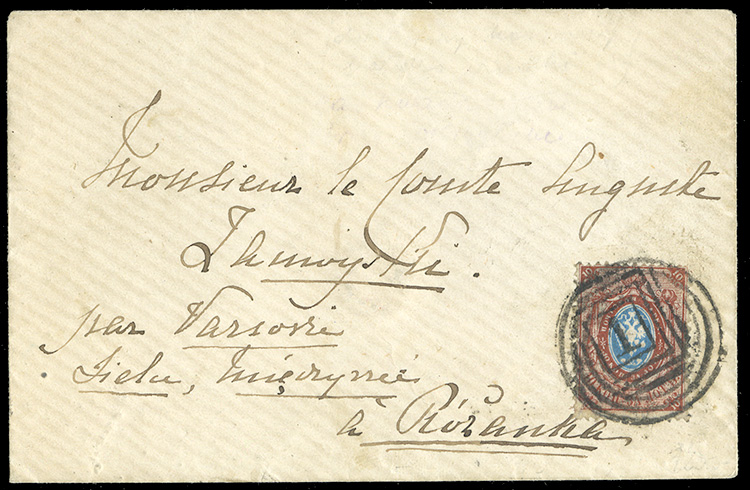 Monsieur le Comte Auguste
Zamoyski.
par Varsovie
Sielce, Międzyrzec
à Różanka
1